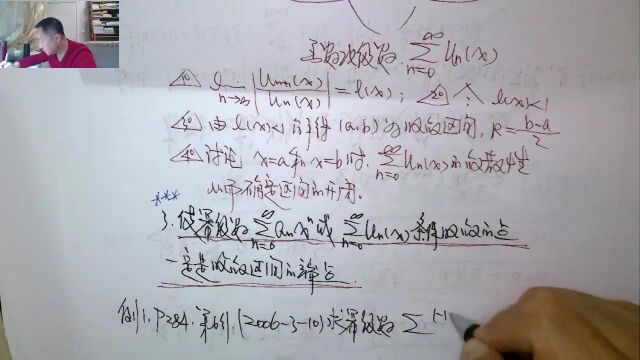 至函数项级数. ∑_{n=0}^{∞} Uₙ(x)
① lim_{n→∞} |Uₙ₊₁(x)/Uₙ(x)| = l(x); ② 令 l(x)<1
③ 由 l(x)<1 解得 (a,b) 为收敛区间, R = (b-a)/2
④ 讨论 x=a 和 x=b 时, ∑_{n=0}^{∞} Uₙ(x) 的敛散性
从而确定区间的开闭.
3. 使幂级数 ∑_{n=0}^{∞} aₙxⁿ 或 ∑_{n=0}^{∞} Uₙ(x) 条件收敛的点
一定是收敛区间的端点
例1. P284. 第6例. (2006-3-10) 求幂级数 ∑ (-1